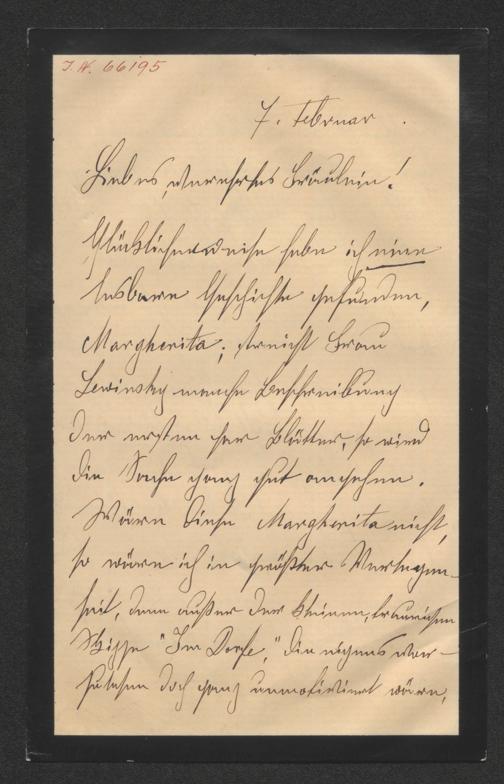 I. N. 66195
7. Februar.
Liebes, verehrtes Fräulein!
Glücklicherweise habe ich eine
lesbare Geschichte gefunden,
Margherita; streicht Frau
Lewinsky manche Beschreibung
der ersten Blätter, so wird
die Sache ganz gut angehen.
Wäre diese Margherita nicht,
so wäre ich in größter Verlegen-
heit, denn außer der kleinen, traurigen
Skizze "Im Dorfe," die eigens vor-
zulesen doch ganz unmotivirt wäre,